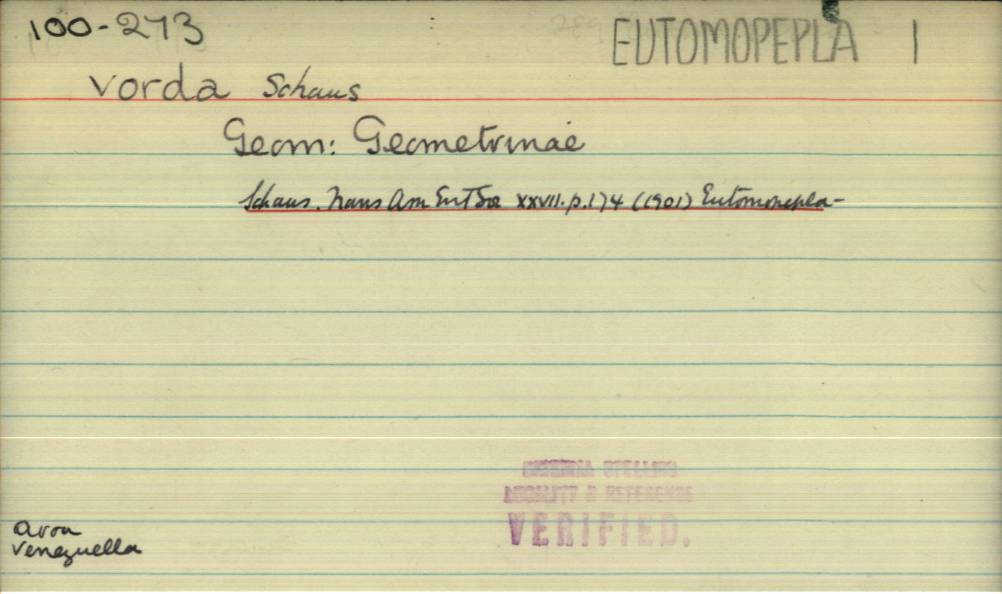 100-273
EUTOMOPEPLA 1
vorda Schaus
Geom: Geometrinae
Schaus. Trans Am Ent Soc XXVII. p. 174 (1901) Eutomopepla-
SPELLING
LOCALITY & REFERENCE
VERIFIED.
aroa
Venezuella